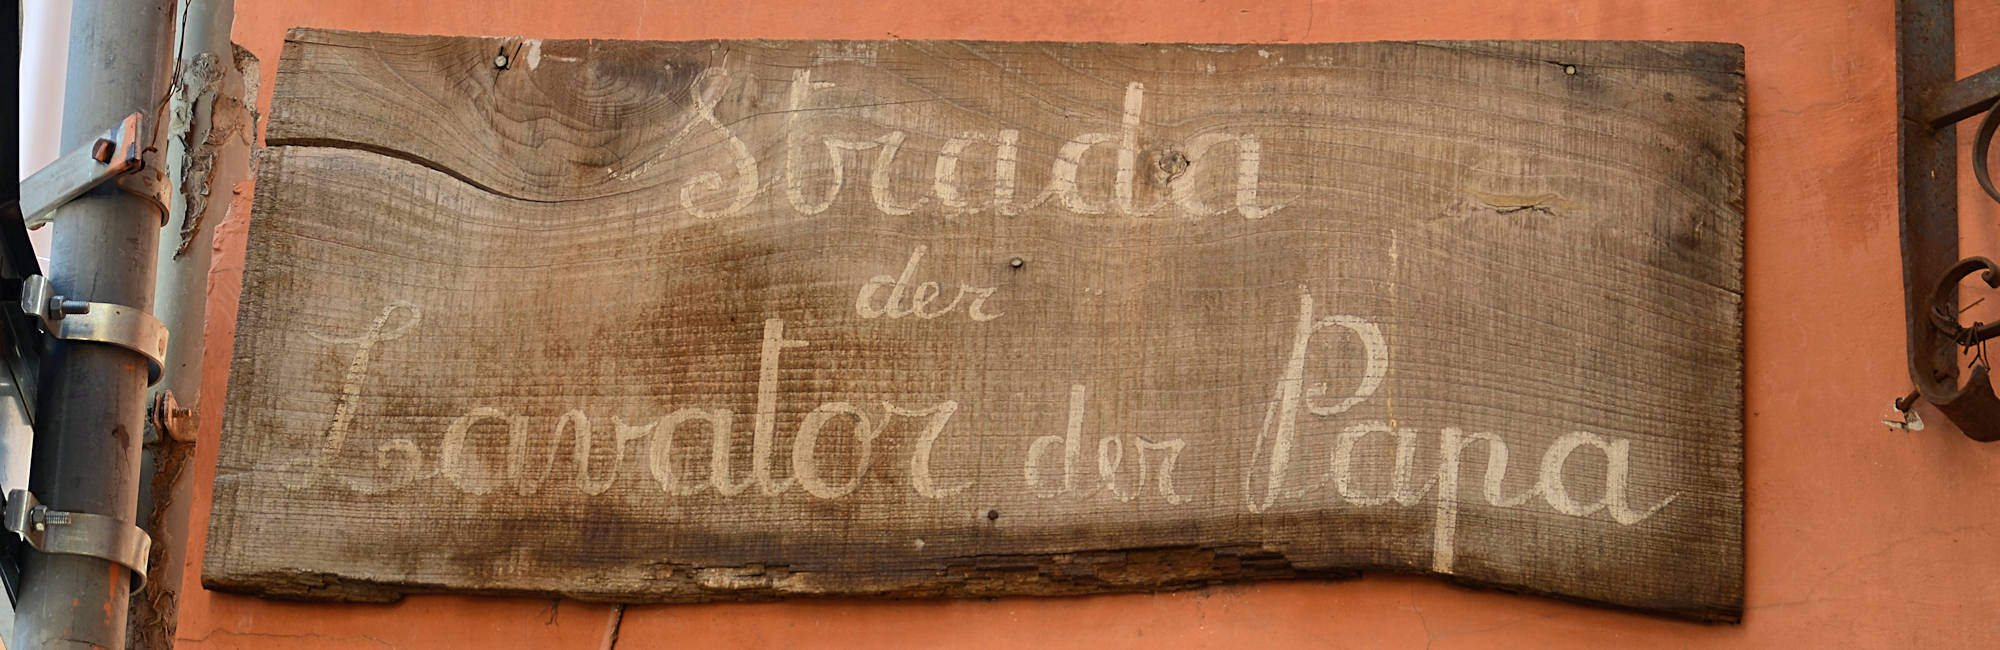 Strada
der
Lavator der Papa